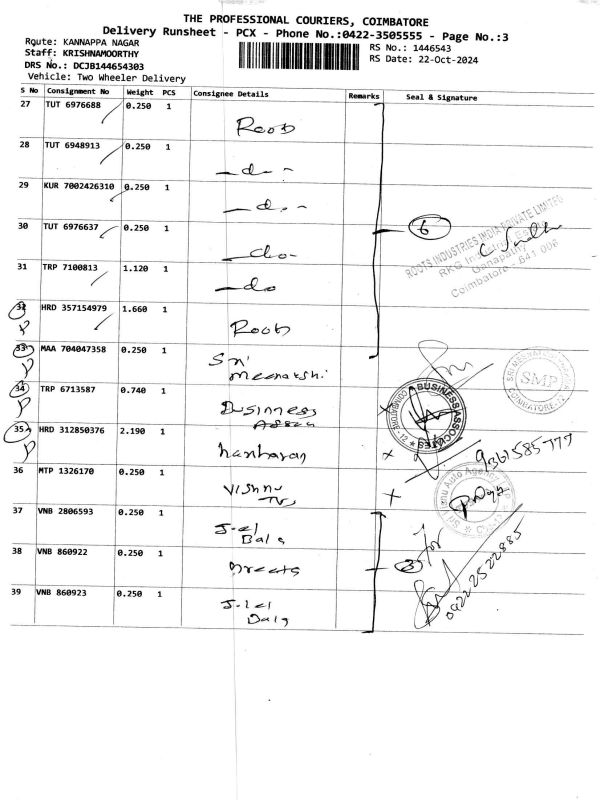 THE PROFESSIONAL COURIERS, COIMBATORE
Delivery Runsheet - PCX - Phone No.:0422-3505555 - Page No.:3
Route: KANNAPPA NAGAR
RS No.: 1446543
Staff: KRISHNAMOORTHY
RS Date: 22-Oct-2024
DRS No.: DCJB144654303
Vehicle: Two Wheeler Delivery
S No Consignment No Weight PCS Consignee Details Remarks Seal & Signature
27 TUT 6976688 0.250 1 Roots
28 TUT 6948913 0.250 1 -do-
29 KUR 7002426310 0.250 1 -do-
30 TUT 6976637 0.250 1 -do-
6
ROOTS INDUSTRIES INDIA PRIVATE LIMITED
RKG Industrial
Ganapathy
Coimbatore - 641 006
31 TRP 7100813 1.120 1 -do
32 HRD 357154979 1.660 1 Roots
P
33 MAA 704047358 0.250 1 Sri
meenakshi
P
SMP
COIMBATORE-12
34 TRP 6713587 0.740 1 Business
Assoc
P
BUSINESS ASSOCIATES
35 HRD 312850376 2.190 1 hariharan
P
9361585777
36 MTP 1326170 0.250 1 Vishnu
TVS
37 VNB 2806593 0.250 1 J-el
Bala
For
38 VNB 860922 0.250 1
3
09222522885
39 VNB 860923 0.250 1 J-el
Bala